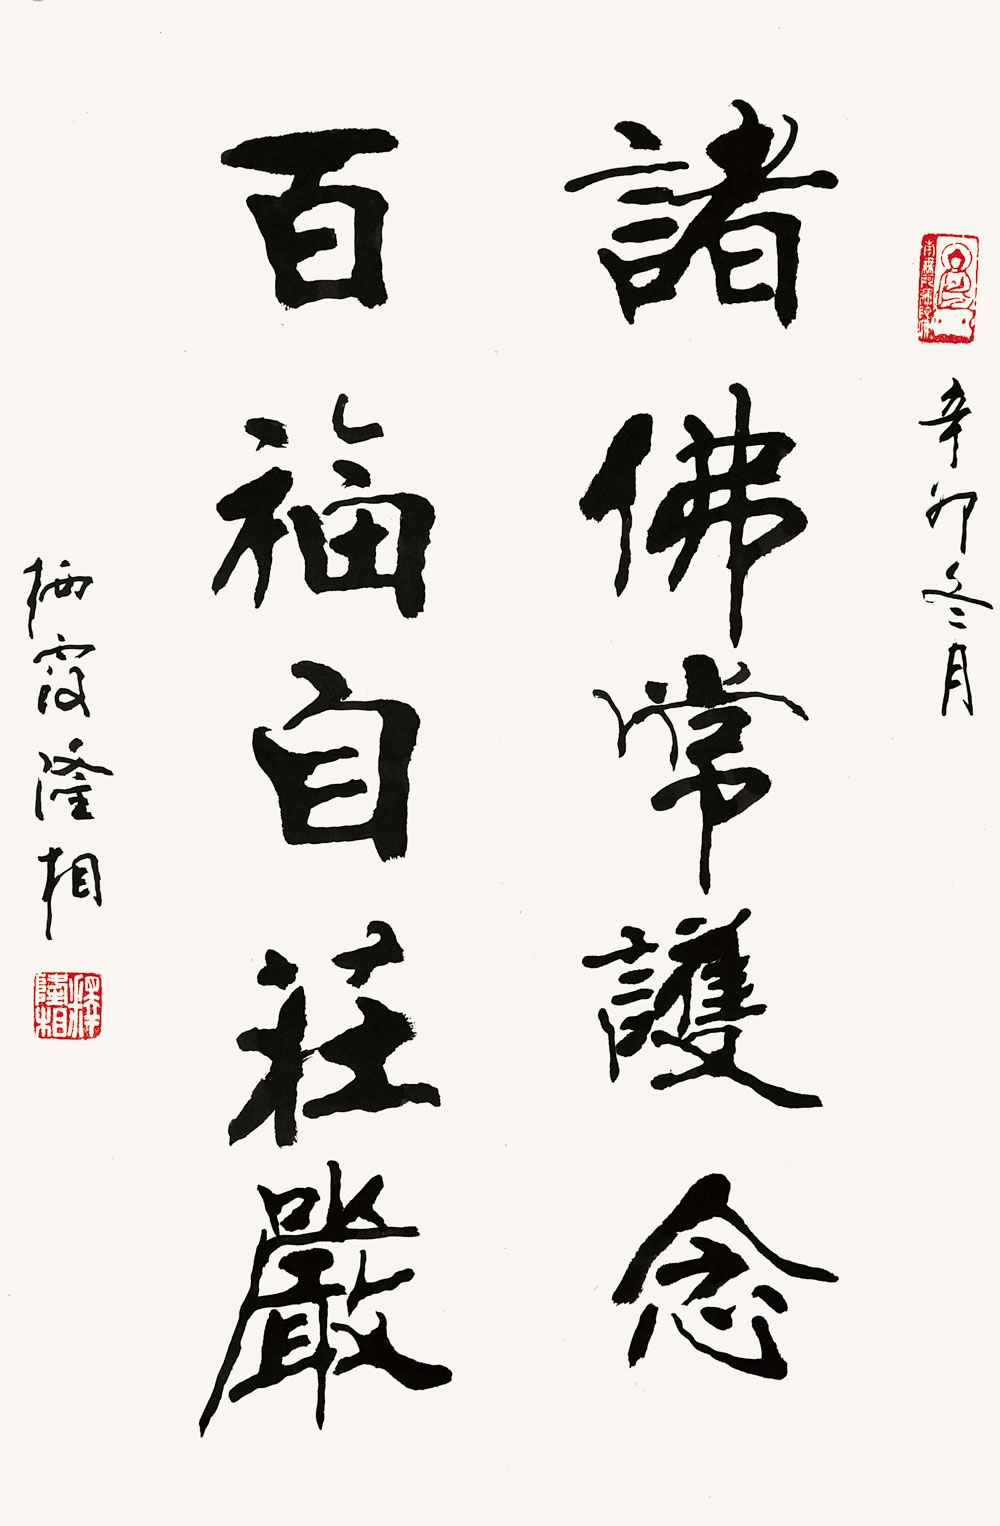 辛卯冬月
諸佛常護念
百福自莊嚴
栖霞隆相
釋隆相